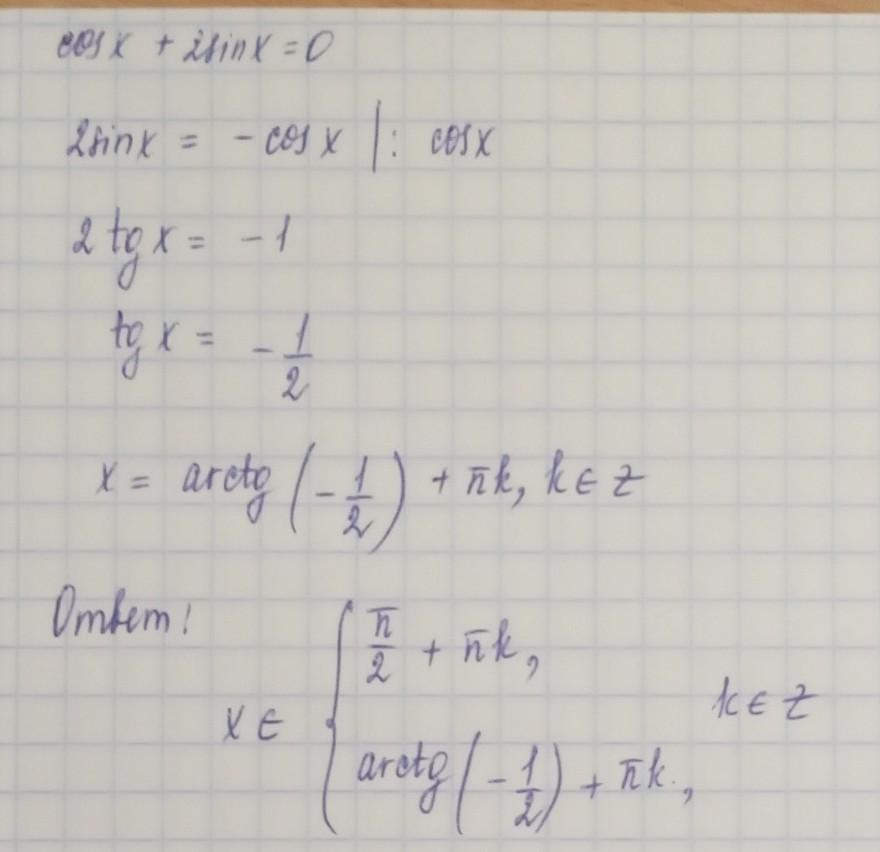 cosx + 2sinx = 0
2sinx = - cosx |: cosx
2 tgx = - 1
tgx = - 1/2
x = arctg (- 1/2) + πk, k ∈ z
Ответ:
x ∈ { π/2 + πk,
arctg (- 1/2) + πk, k ∈ z